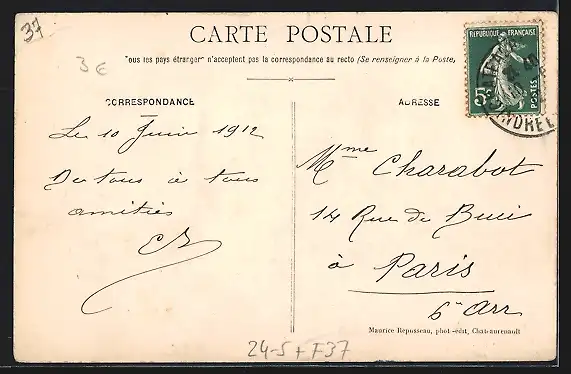 37
3 €
CARTE POSTALE
Tous les pays étrangers n'acceptent pas la correspondance au recto (Se renseigner à la Poste)
REPUBLIQUE FRANÇAISE
5c
POSTES
CORRESPONDANCE
ADRESSE
Le 10 Juin 1912
De tous à tous
amitiés
Mme Charabot
14 Rue de Buci
à Paris
6e Arr
Maurice Repusseau, phot-édit, Chateaurenault
24-5 + F37